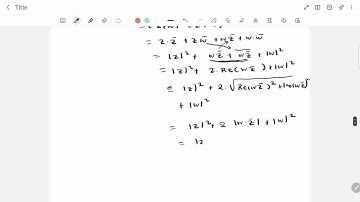 Title
= z·z̄ + z w̄ + w z̄ + w·w̄
= |z|² + w z̄ + w̄ z̄ + |w|²
= |z|² + 2·Re(w z̄) + |w|²
≤ |z|² + 2·√(Re(w z̄)² + Im(w z̄)²
+ |w|²
= |z|² + 2·|w·z̄| + |w|²
= |z